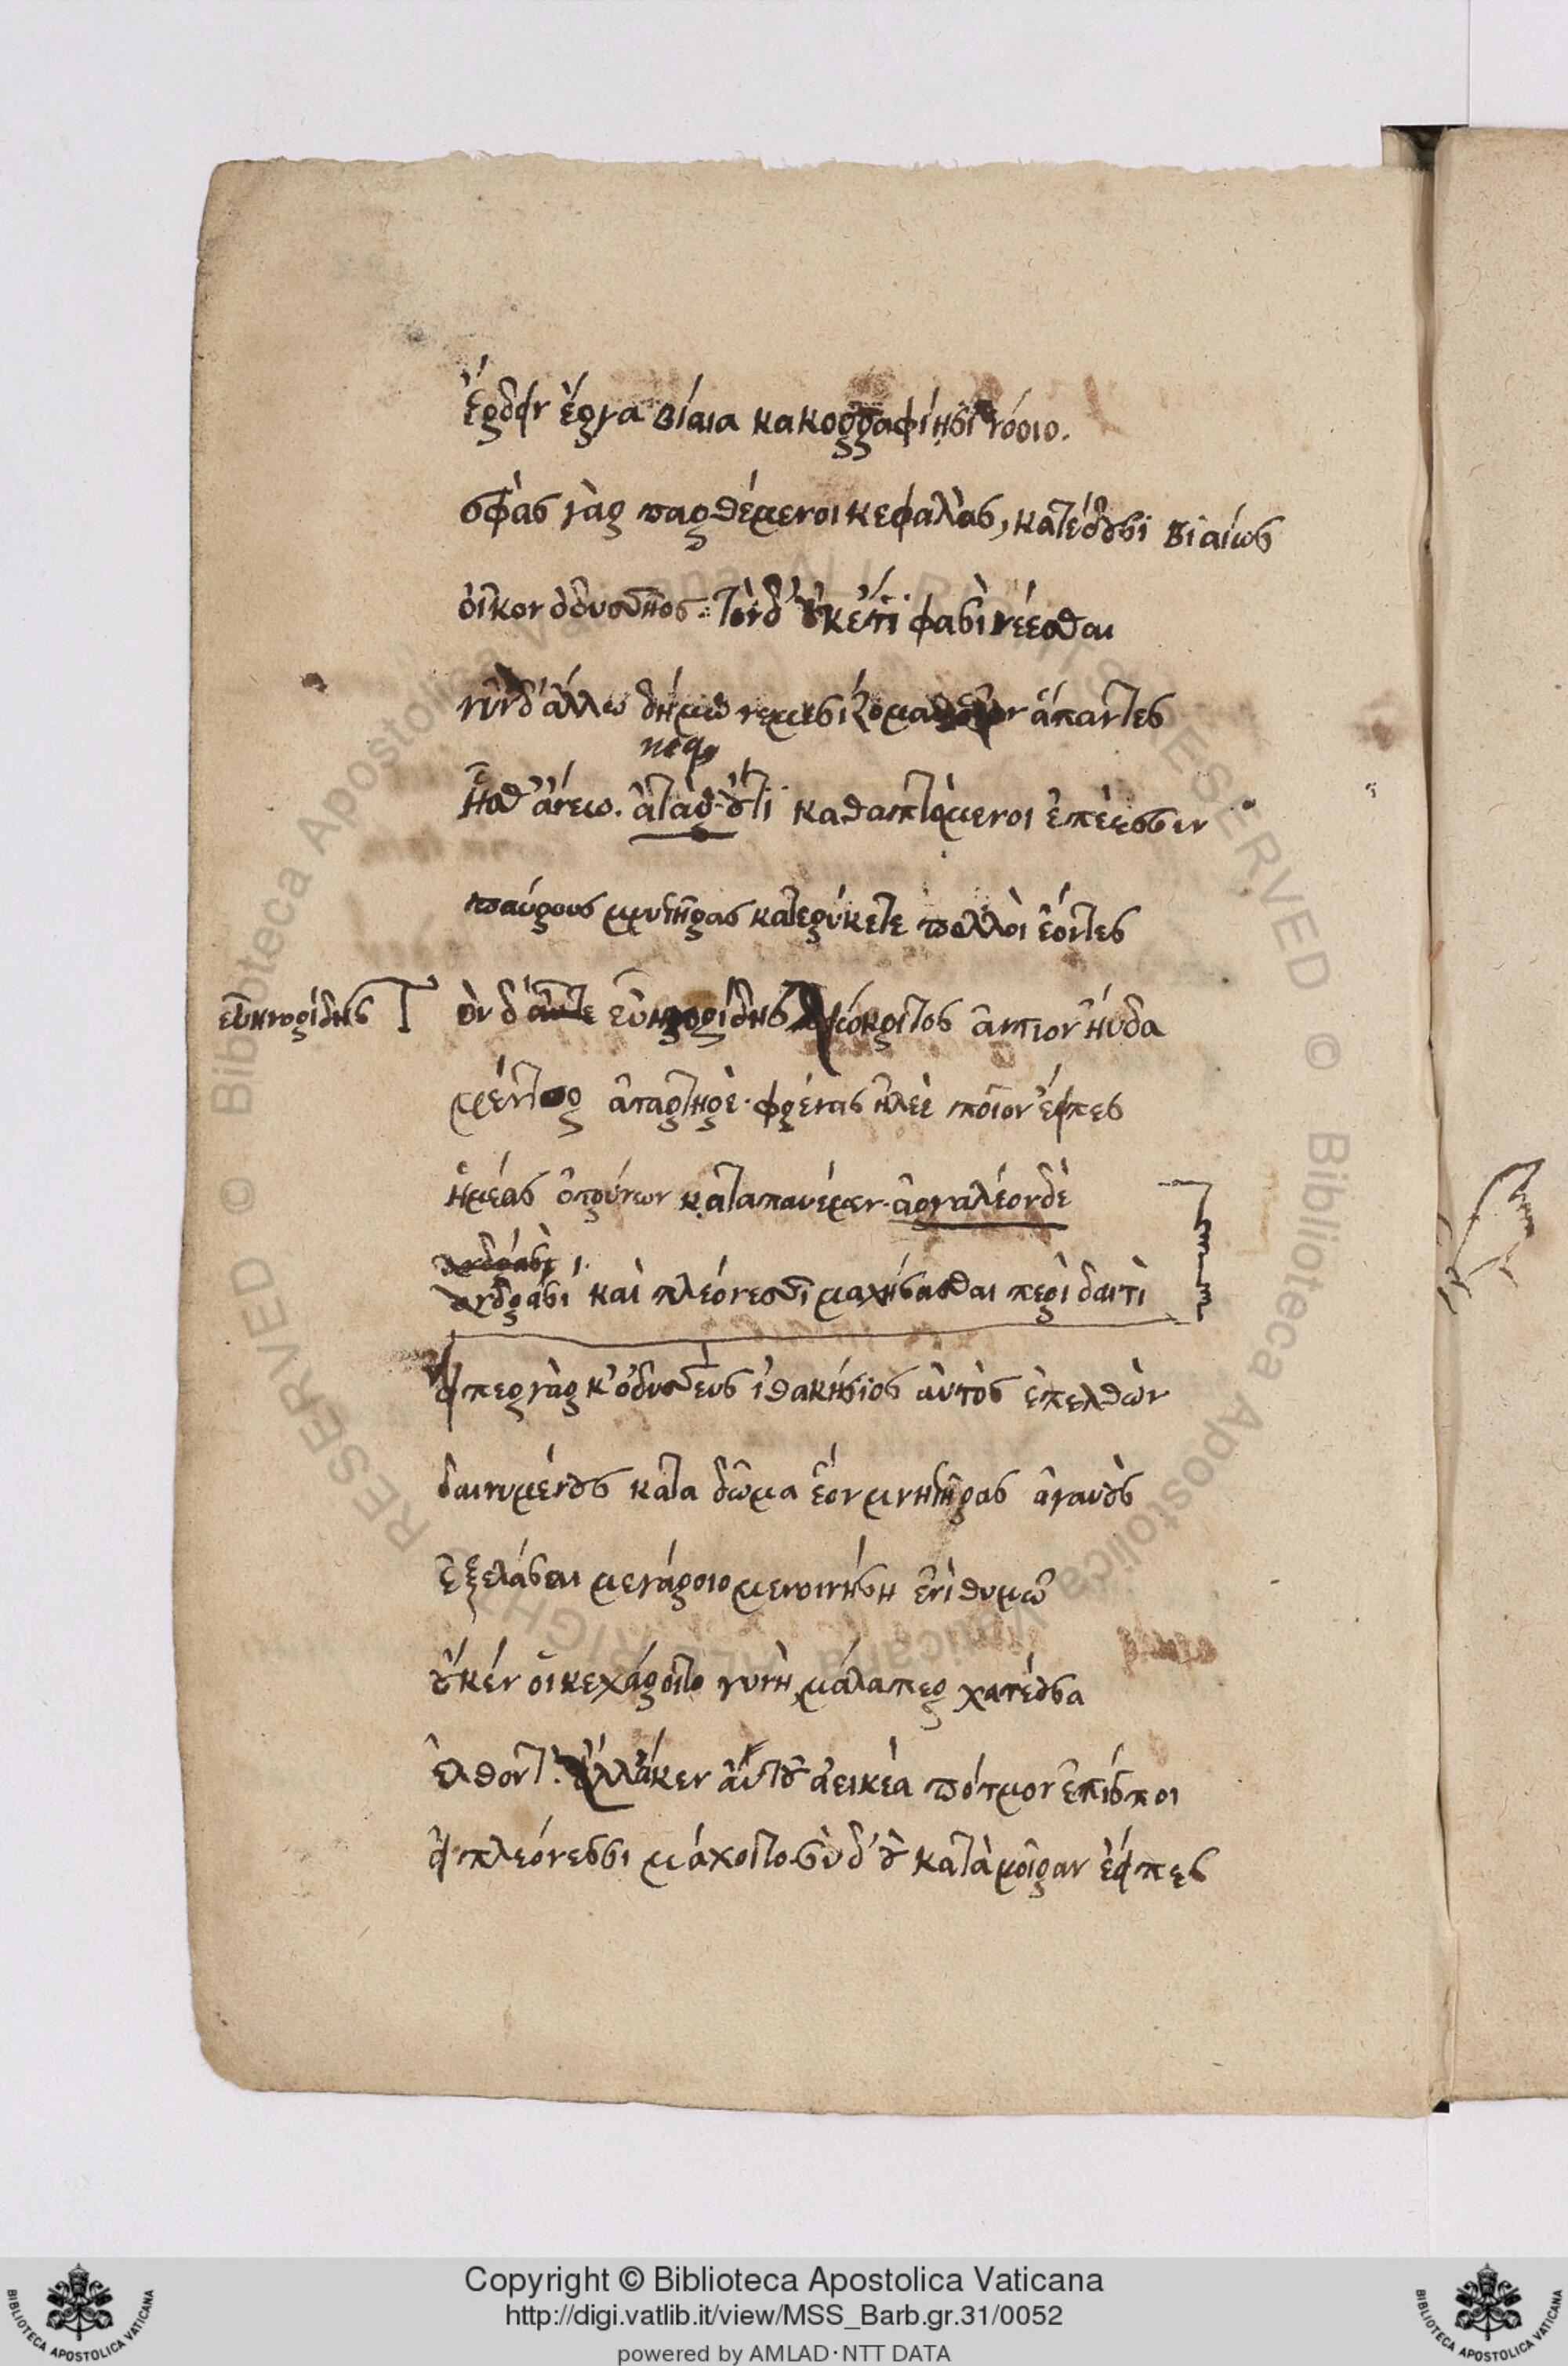 ἔρδειν ἔργα βίαια κακορραφίῃσι νόοιο.
σφὰς γὰρ παρθέμενοι κεφαλὰς, κατέδουσι βιαίως
οἶκον ὀδυσσῆος· τὸν δ' οὐκέτι φασὶ νέεσθαι
νῦν δ' ἄλλω δήμω νεμεσίζομαι ἅπαντες
ἧσθ' ἄνεω. ἀτὰρ οὔτι καθαπτόμενοι ἐπέεσσιν
παύρους μνηστῆρας κατερύκετε πολλοὶ ἐόντες
εὐηνορίδης
ὸν δ' αὖτε εὐηνορίδης λειόκριτος ἀντίον ηύδα
μέντορ ἀταρτηρὲ· φρένας ἠλεὲ ποῖον ἔειπες
ἡμέας ὀτρύνων καταπαυέμεν· ἀργαλέον δὲ
ἀνδράσι
ἀνδράσι καὶ πλεόνεσσι μαχήσασθαι περὶ δαιτὶ
εἴπερ γὰρ κ' ὀδυσσεὺς ἰθακήσιος αὐτὸς ἐπελθὼν
δαινυμένους κατα δῶμα ἑὸν μνηστῆρας ἀγαυοὺς
ἐξελάσαι μεγάροιο μενοινήση ἐνὶ θυμῶ
οὔκέν οἱ κεχάροιτο γυνὴ μάλα περ χατέουσα
ἐλθόντ'. ἀλλάκεν αὐτοῦ ἀεικέα πότμον ἐπίσποι
εἰ πλεόνεσσι μάχοιτο· σὺ δ' οὐ κατὰ μοῖραν ἔειπες
Copyright © Biblioteca Apostolica Vaticana
http://digi.vatlib.it/view/MSS_Barb.gr.31/0052
powered by AMLAD·NTT DATA
BIBLIOTECA APOSTOLICA VATICANA
BIBLIOTECA APOSTOLICA VATICANA
© Biblioteca Apostolica Vaticana ALL RIGHTS RESERVED
© Biblioteca Apostolica Vaticana ALL RIGHTS RESERVED